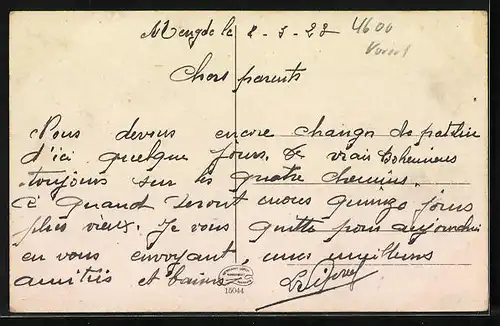 le 8-5-23 4600
Chers parents
Nous devons encore changer de
d'ici quelque jours. de vrais Bohémiens
toujours sur les quatre chemins.
Quand seront nous quinze jours
plus vieux. Je vous quitte pour aujourdhui
en vous envoyant, mes meilleurs
amitiés et baisers
15044